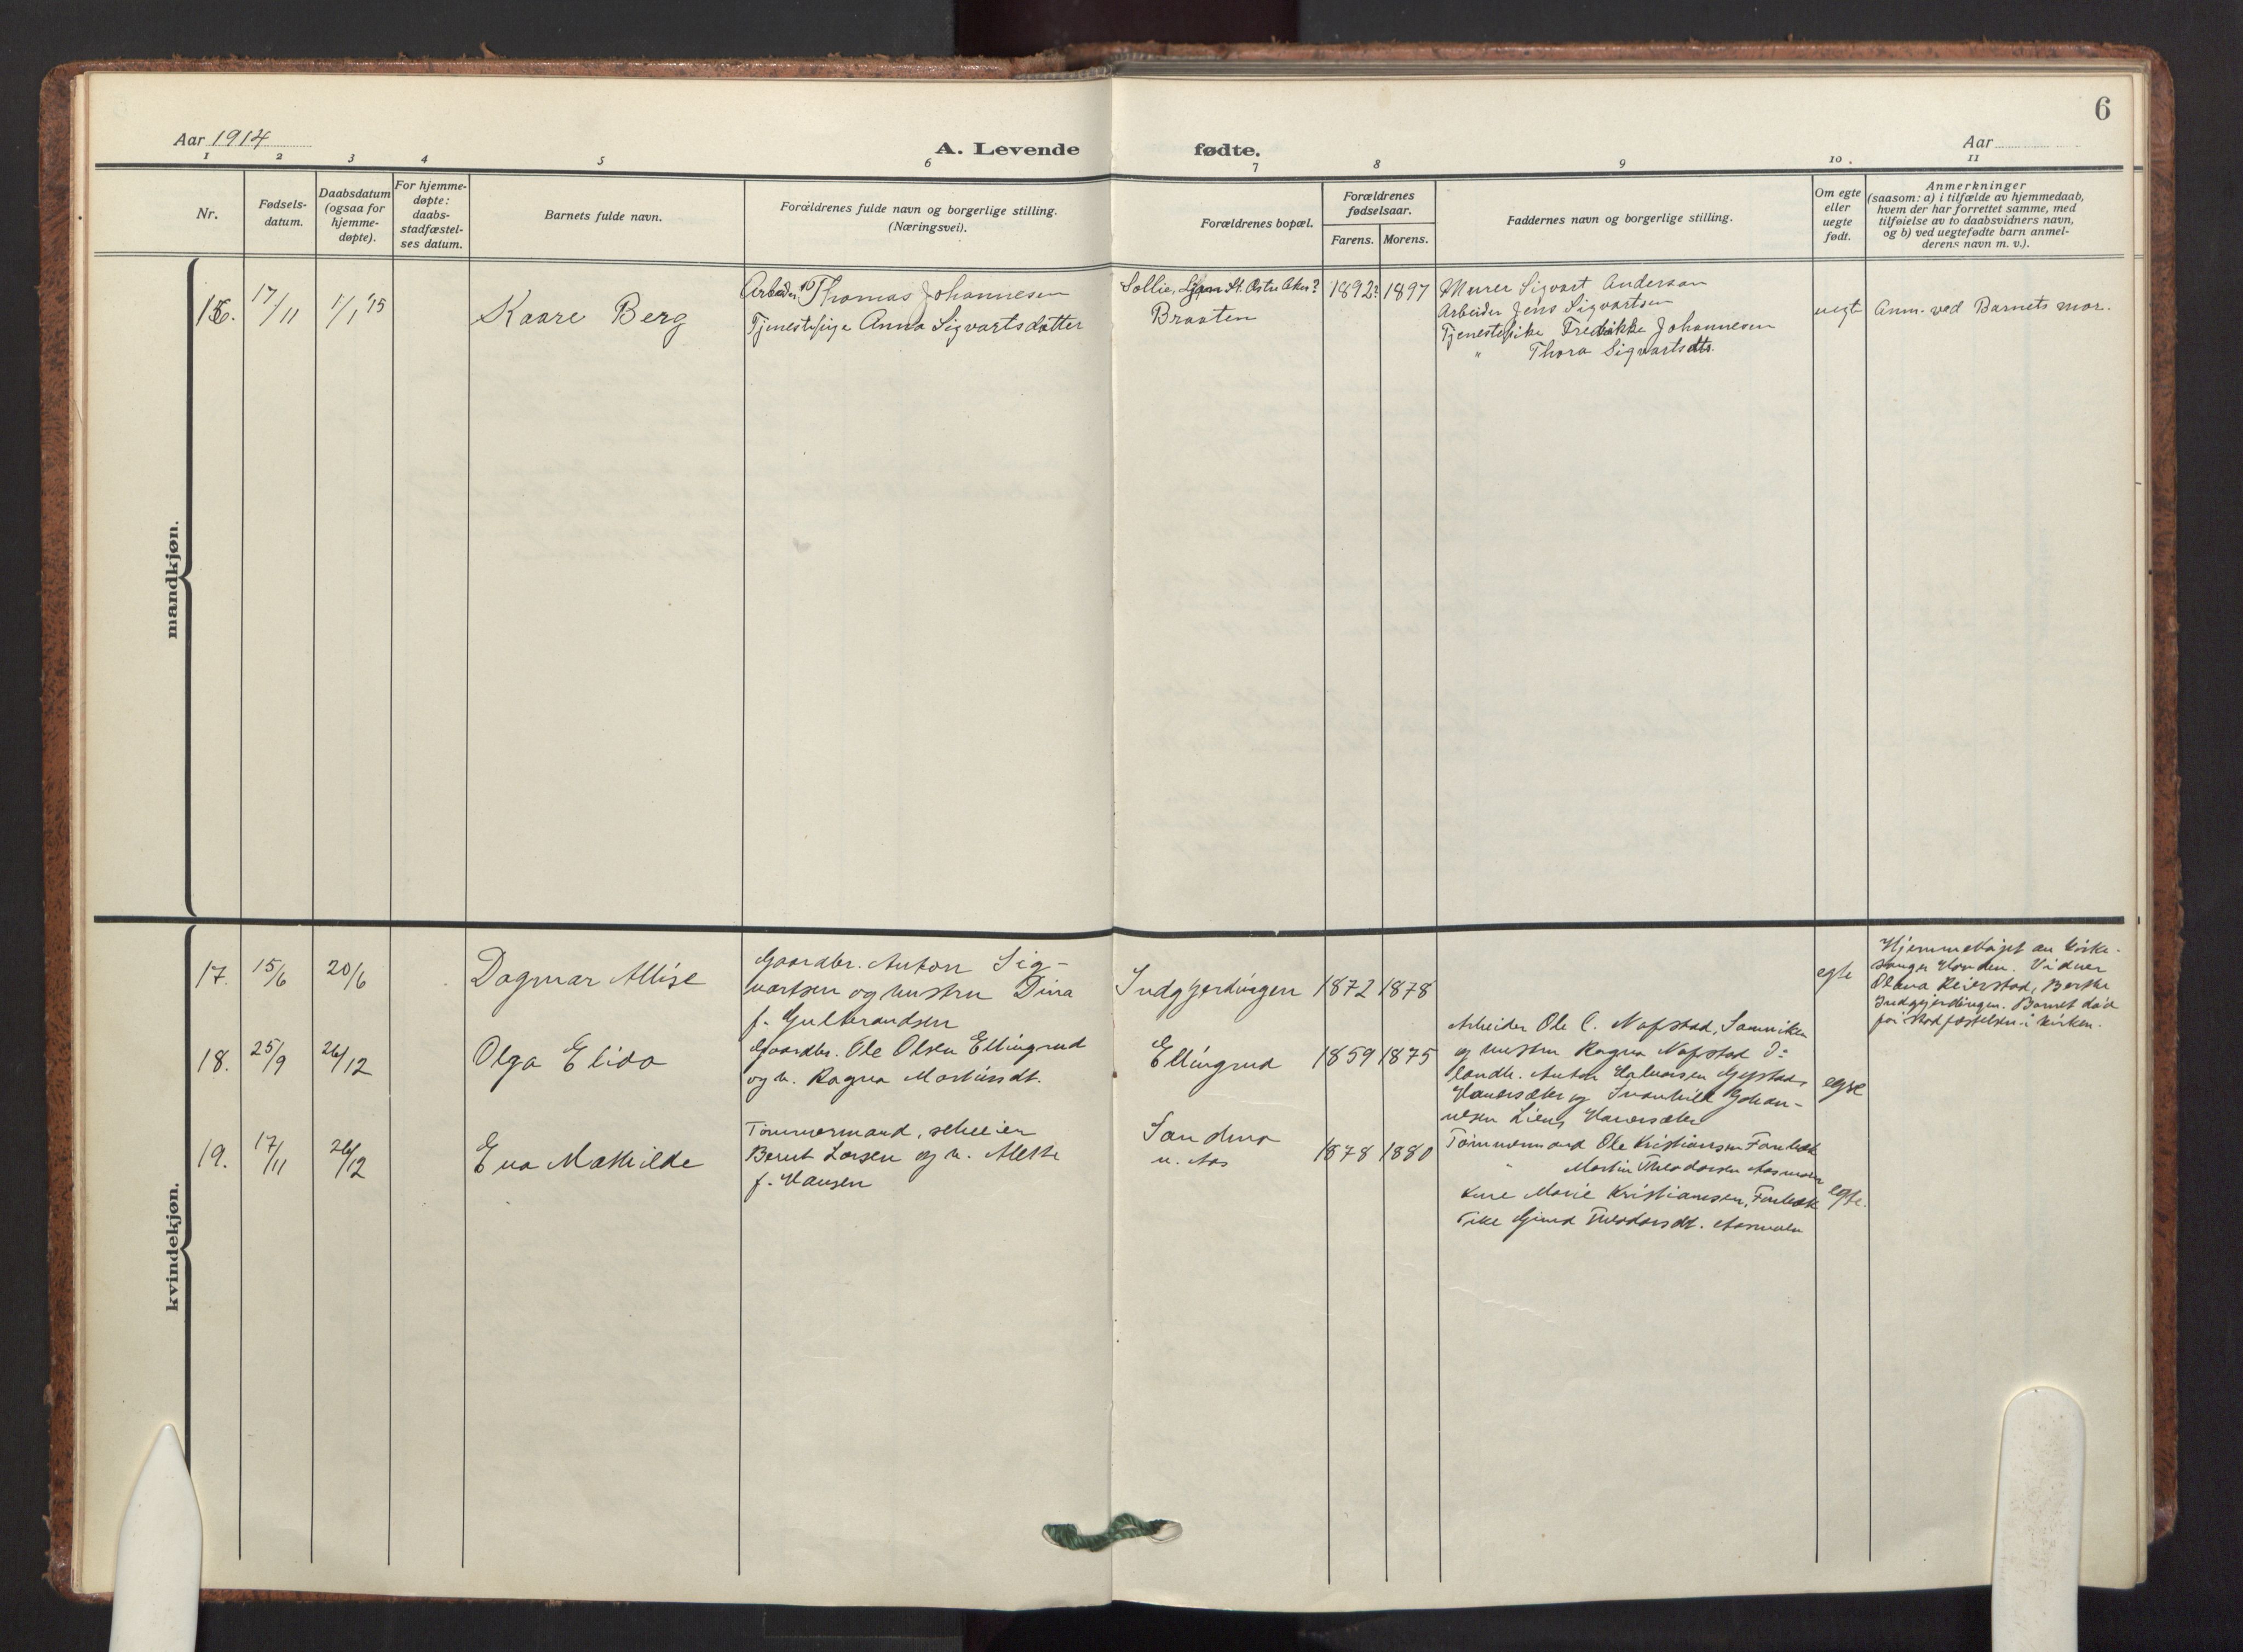 6
Aar 1914
A. Levende fødte.
Aar
1 2 3 4 5 6 7 8 9 10. 11
Nr.
Fødsels-
datum.
Daabsdatum
(ogsaa for
hjemme-
døpte).
For hjemme-
døpte:
daabs-
stadfæstel-
ses datum.
Barnets fulde navn.
Forældrenes fulde navn og borgerlige stilling.
(Næringsvei).
Forældrenes bopæl.
Forældrenes
fødselsaar.
Farens. Morens.
Faddernes navn og borgerlige stilling.
Om egte
eller
uegte
født.
Anmerkninger
(saasom: a) i tilfælde av hjemmedaab,
hvem der har forrettet samme, med
tilføielse av to daabsvidners navn,
og b) ved uegtefødte barn anmel-
derens navn m. v.).
mandkjøn.
16. 17/11 1/1 '15
Kaare Berg
Arbeider Thomas Johannesen
Tjenestepige Anna Sigvartsdatter
Sollie, St. Østre Aker?
Braaten
1892? 1897
Murer Sigvart Andersen
Arbeider Jens Sigvartsen
Tjenestepike Fredrikke Johannesen
" Thora Sigvartsdtr.
uegte
Anm. ved Barnets mor.
kvindekjøn.
17. 15/6 20/6
Dagmar Allise
Gaardbr. Anton Sig-
vartsen og hustru Dina
f. Gulbrandsen
Indgjerdingen 1872 1878
egte
Hjemmedøpt av kirke-
sanger Vidner
Olava Reierstad, Berthe
Indgjerdingen. Barnet død
før stadfæstelsen i kirken.
18. 25/9 26/12
Olga Elida
Gaardbr. Ole Olsen Ellingrud
og h. Ragna Martinsdt.
Ellingrud 1859 1875
Arbeider Ole C. Nafstad,
og hustru Ragna Nafstad
Anton Halvorsen
og Johan-
nesen Lieng
egte
19. 17/11 26/12
Eva Mathilde
Tømmermand, selveier
Bernt Larsen og h. Alette
f. Hansen
Sandmo
u. Aas
1878 1880
Tømmermand Ole Kristiansen
" Martin Theodorsen Aasmoen
Kone Marie Kristiansen,
Pike Theodorsdt. Aasmoen
egte.